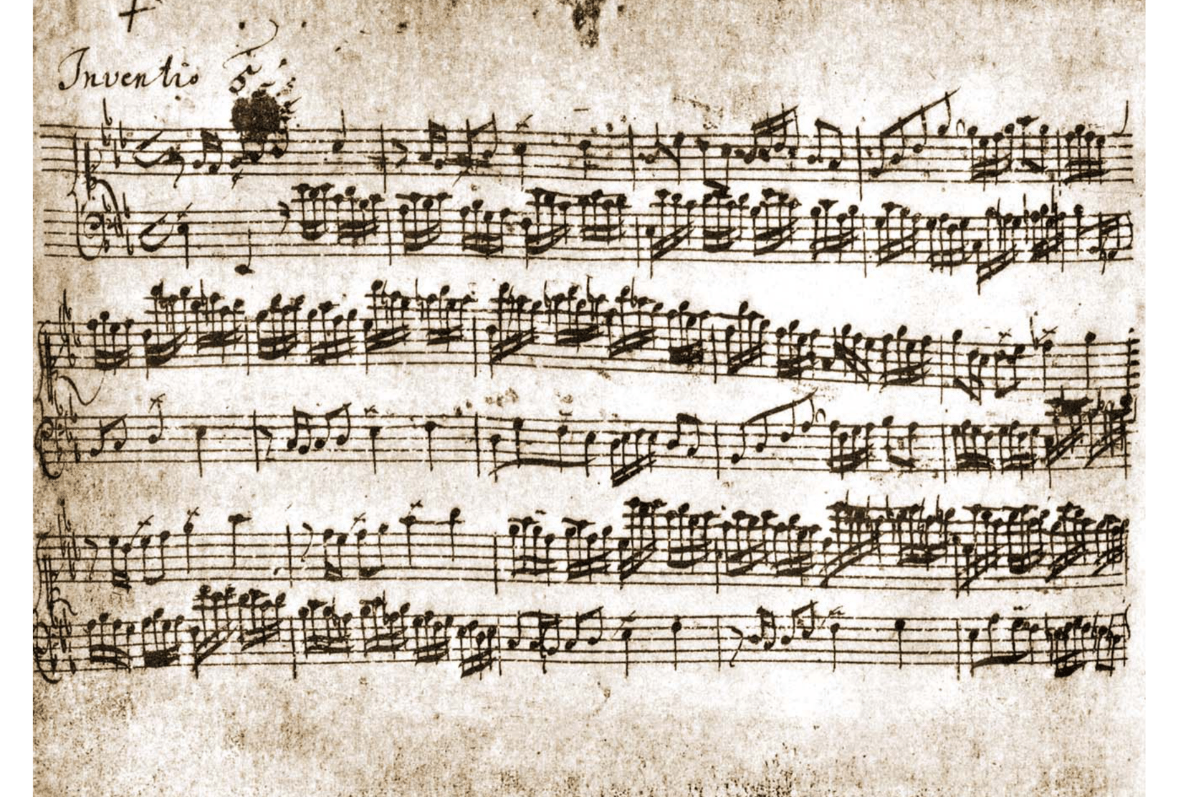 Inventio 5